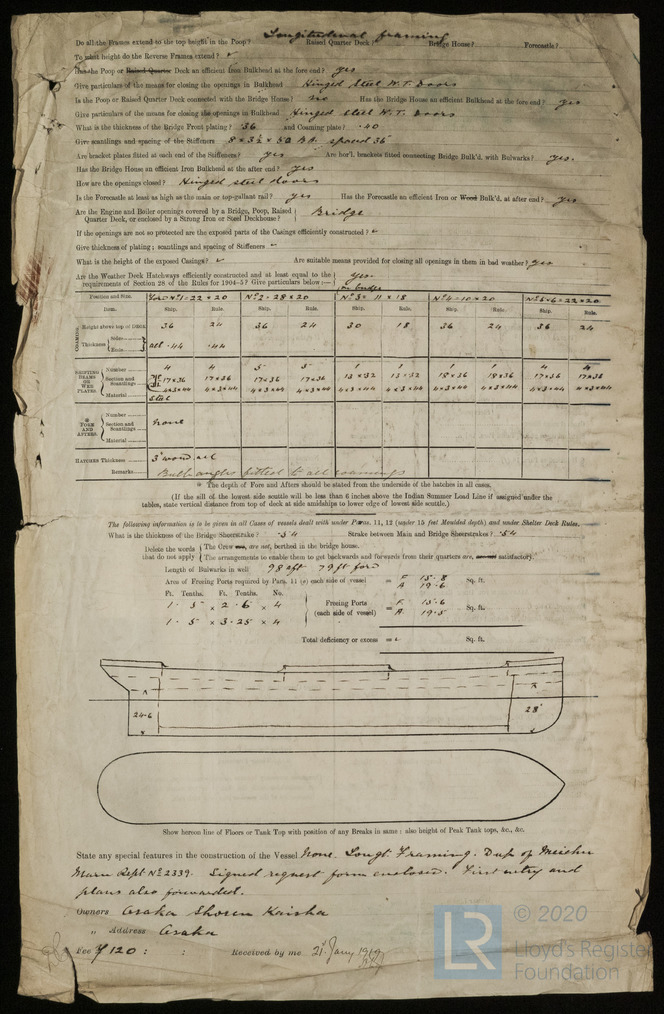 Longitudinal framing
Do all the Frames extend to the top height in the Poop? Raised Quarter Deck? Bridge House? Forecastle?
To what height do the Reverse Frames extend? ✓
Has the Poop or Raised Quarter Deck an efficient Iron Bulkhead at the fore end? yes
Give particulars of the means for closing the openings in Bulkhead Hinged Steel W.T. Doors
Is the Poop or Raised Quarter Deck connected with the Bridge House? no Has the Bridge House an efficient Bulkhead at the fore end? yes
Give particulars of the means for closing the openings in Bulkhead Hinged Steel W.T. Doors
What is the thickness of the Bridge Front plating? .36 and Coaming plate? .40
Give scantlings and spacing of the Stiffeners 8 × 3½ × 50 BA. spaced 36"
Are bracket plates fitted at each end of the Stiffeners? yes Are hor'l. brackets fitted connecting Bridge Bulk'd. with Bulwarks? yes.
Has the Bridge House an efficient Iron Bulkhead at the after end? yes
How are the openings closed? Hinged steel doors
Is the Forecastle at least as high as the main or top-gallant rail? yes Has the Forecastle an efficient Iron or Wood Bulk'd. at after end? yes
Are the Engine and Boiler openings covered by a Bridge, Poop, Raised Quarter Deck, or enclosed by a Strong Iron or Steel Deckhouse? Bridge
If the openings are not so protected are the exposed parts of the Casings efficiently constructed? ✓
Give thickness of plating; scantlings and spacing of Stiffeners ✓
What is the height of the exposed Casings? ✓ Are suitable means provided for closing all openings in them in bad weather? yes
Are the Weather Deck Hatchways efficiently constructed and at least equal to the requirements of Section 28 of the Rules for 1904-5? Give particulars below:— yes.
on bridge
Position and Size. Nº1 = 22 × 20 Nº2 = 28 × 20 Nº3 = 11 × 18 Nº4 = 10 × 20 Nº5 & 6 = 22 × 20
Item. Ship. Rule. Ship. Rule. Ship. Rule. Ship. Rule. Ship. Rule.
COAMING Height above top of DECK 36 24 36 24 30 18 36 24 36 24
Thickness Sides
Ends all .44 .44
SHIFTING BEAMS OR WEB PLATES. Number 4 4 5 5 1 1 1 1 4 4
Section and Scantlings 17×36 17×36 17×36 17×36 13×32 13×32 18×36 18×36 17×36 17×36
4×3×44 4×3×44 4×3×44 4×3×44 4×3×44 4×3×44 4×3×44 4×3×44 4×3×44 4×3×44
Material Steel
* FORE AND AFTERS. Number
Section and Scantlings none
Material
HATCHES Thickness 3" wood all
Remarks Bulb angles fitted to all coamings
* The depth of Fore and Afters should be stated from the underside of the hatches in all cases.
(If the sill of the lowest side scuttle will be less than 6 inches above the Indian Summer Load Line if assigned under the
tables, state vertical distance from top of deck at side amidships to lower edge of lowest side scuttle.)
The following information is to be given in all Cases of vessels dealt with under Paras. 11, 12 (under 15 feet Moulded depth) and under Shelter Deck Rules.
What is the thickness of the Bridge Sheerstrake? .54 Strake between Main and Bridge Sheerstrakes? .54
Delete the words that do not apply
The Crew are, are not, berthed in the bridge house.
The arrangements to enable them to get backwards and forwards from their quarters are, are not satisfactory.
Length of Bulwarks in well 98 aft 79 ft ford
Area of Freeing Ports required by Para. 11 (e) each side of vessel = F. 15.8 Sq. ft.
A 19.6
Ft. Tenths. Ft. Tenths. No.
1 . 5 × 2 . 6 × 4
Freeing Ports (each side of vessel) = F. 15.6 Sq. ft.
A. 19.5
1 . 5 × 3.25 × 4
Total deficiency or excess = Sq. ft.
24.6 28'
Show hereon line of Floors or Tank Top with position of any Breaks in same: also height of Peak Tank tops, &c., &c.
State any special features in the construction of the Vessel None. Longl. Framing. Dup of Meishu
Maru Rept Nº 2339. Signed request form enclosed. First entry and
plans also forwarded.
Owners Osaka Shosen Kaisha
" Address Osaka
Fee ¥ 120 : : Received by me 21st Jany 1919
LR
© 2020
Lloyd's Register
Foundation